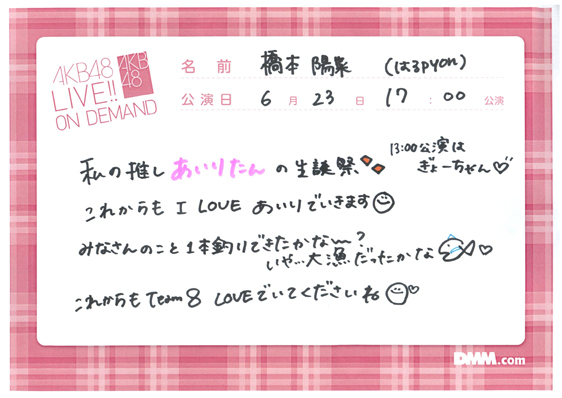 AKB48
LIVE!!
ON DEMAND
AKB
48
名前 橋本 陽菜 (はるpyon)
公演日 6月23日 17:00公演
私の推し あいりたん の生誕祭
13:00公演は
ぎょーちゃん♡
これからも I LOVE あいりでいきます
みなさんのこと1本釣りできたかな〜?
いや…大漁だったかな ♡
これからもTeam8 LOVEでいてくださいね ♡
DMM.com